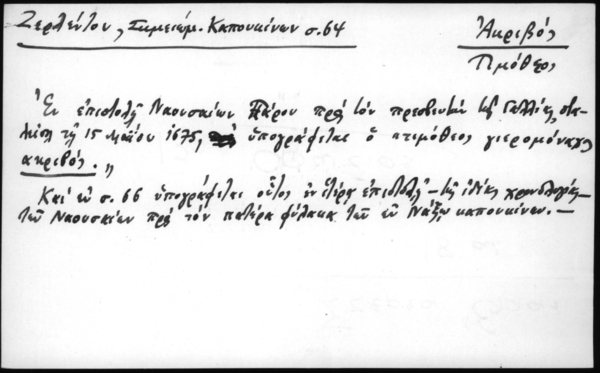 Ζερλέντου, Σημειώμ. Καπουκίνων σ. 64
Ἀκριβός
Τιμόθεος
Ἐν ἐπιστολῇ Ναουσαίων Πάρου πρὸς τὸν πρεσβευτὴν τῆς Γαλλίας,
τῇ 15 Μαΐου 1675, ὑπογράφεται ὁ "τιμόθεος γιερομόναχος
ακριβός."
Καὶ ἐν σ. 66 ὑπογράφεται οὗτος ἐν ἑτέρᾳ ἐπιστολῇ – τῆς ἰδίας χρονολογίας –
τῶν Ναουσαίων πρὸς τὸν πατέρα φύλακα τῶν ἐν Νάξῳ καπουκίνων. –